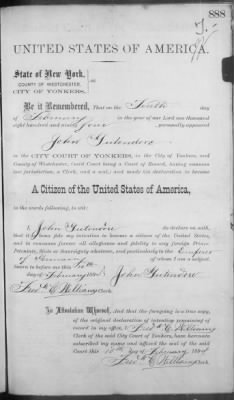 888
UNITED STATES OF AMERICA.
State of New York,
COUNTY OF WESTCHESTER,
CITY OF YONKERS,
ss
Be it Remembered, That on the Tenth day
of February in the year of our Lord one thousand
eight hundred and ninety four, personally appeared
John
in the CITY COURT OF YONKERS, in the City of Yonkers, and
County of Westchester, (said Court being a Court of Record, having common
law jurisdiction, a Clerk, and a seal), and made his declaration to become
A Citizen of the United States of America,
in the words following, to wit:
I, John do declare on oath,
that it is bona fide my intention to become a citizen of the United States,
and to renounce forever all allegiance and fidelity to any foreign Prince,
Potentate, State or Sovereignty whatever, and particularly to the Emperor
of Germany of whom I am a subject.
Sworn to before me this 10th
day of February 1894 John
Fred'k C Clerk
In Attestation Whereof, And that the foregoing is a true copy,
of the original declaration of intention remaining of
record in my office, I Fred'k C
Clerk of the said City Court of Yonkers, have hereunto
subscribed my name and affixed the seal of the said
Court this 10th day of February, 1894
Fred'k C Clerk